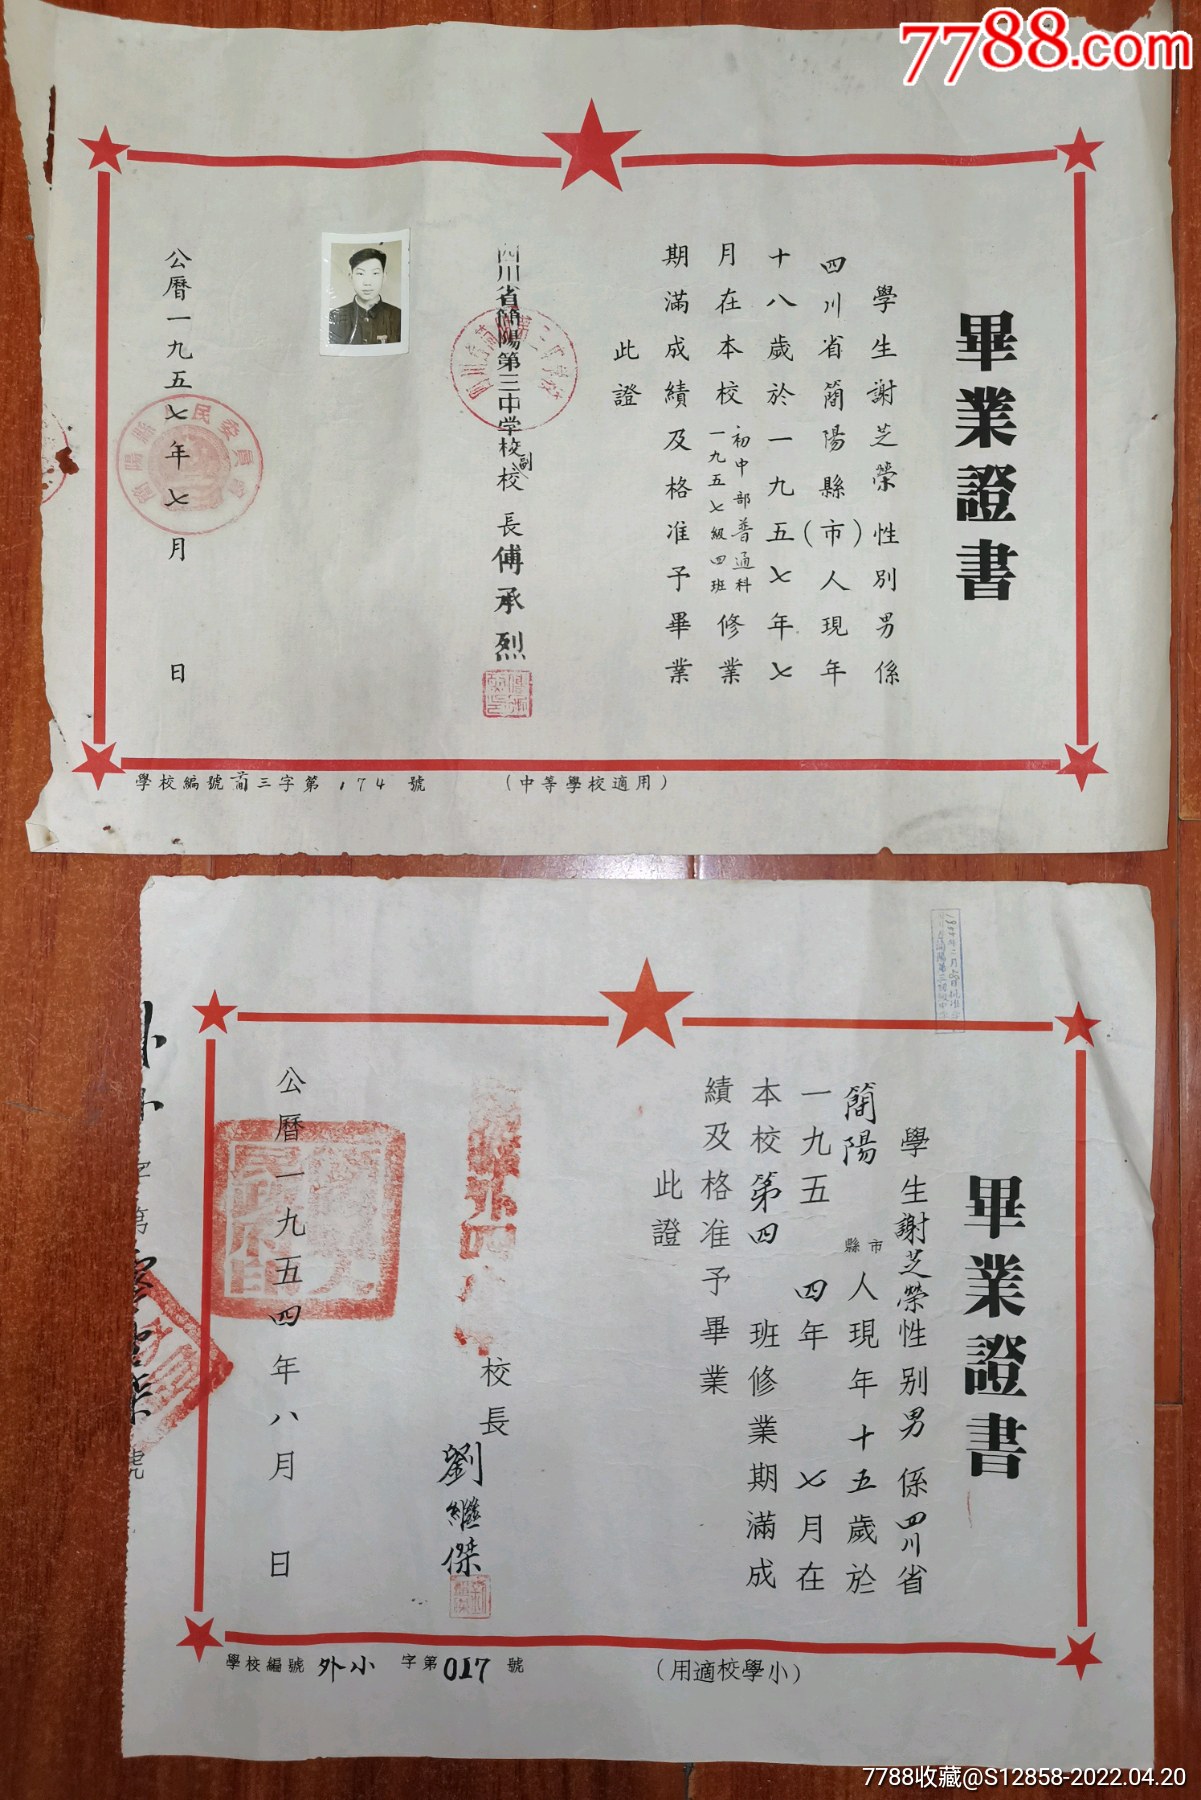 7788.com
畢業證書
學生謝芝榮性別男係
四川省簡陽縣(市)人現年
十八歲於一九五七年七
月在本校初中部普通科一九五七級四班修業
期滿成績及格准予畢業
此證
四川省簡陽第三中学校副校長傅承烈
公曆一九五七年七月 日
學校編號簡三字第174號
(中等學校適用)
畢業證書
學生謝芝榮性別男係四川省
簡陽縣市人現年十五歲於
一九五四年七月在
本校第四班修業期滿成
績及格准予畢業
此證
校長劉繼傑
公曆一九五四年八月 日
學校編號外小字第017號
(小學校適用)
7788收藏@S12858-2022.04.20